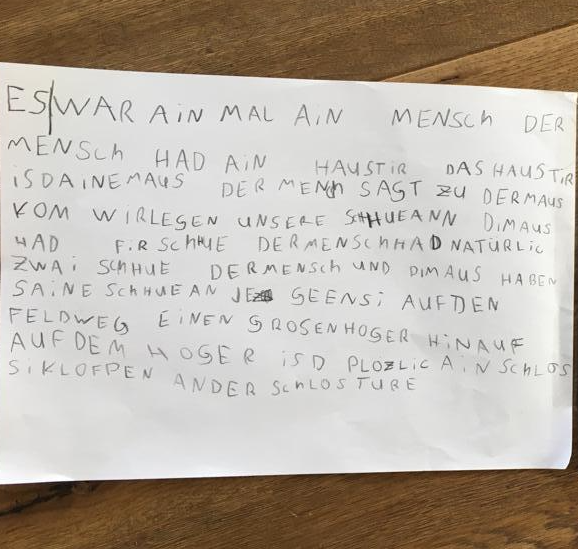 ES WAR AiN MAL AiN MENSCh DER
MENSCh HAD AiN HAUSTiR DAS HAUSTiR
iSDAiNEMAUS DER MENCh SAGT ZU DERMAUS
KOM WiRLEGEN UNSERE SCHHUEANN DiMAUS
HAD FiR SCHHUE DERMENSCHHAD NATÜRLiC
ZWAi SCHHUE DERMENSCH UND DiMAUS HABEN
SAiNE SCHHUEAN GEENSi AUFDEN
FELDWEG EiNEN GROSENHOGER HiNAUF
AUFDEM HOGER iSD PLOZLiC AiN SCHLOS
SiKLOFPEN ANDER SCHLOSTURE